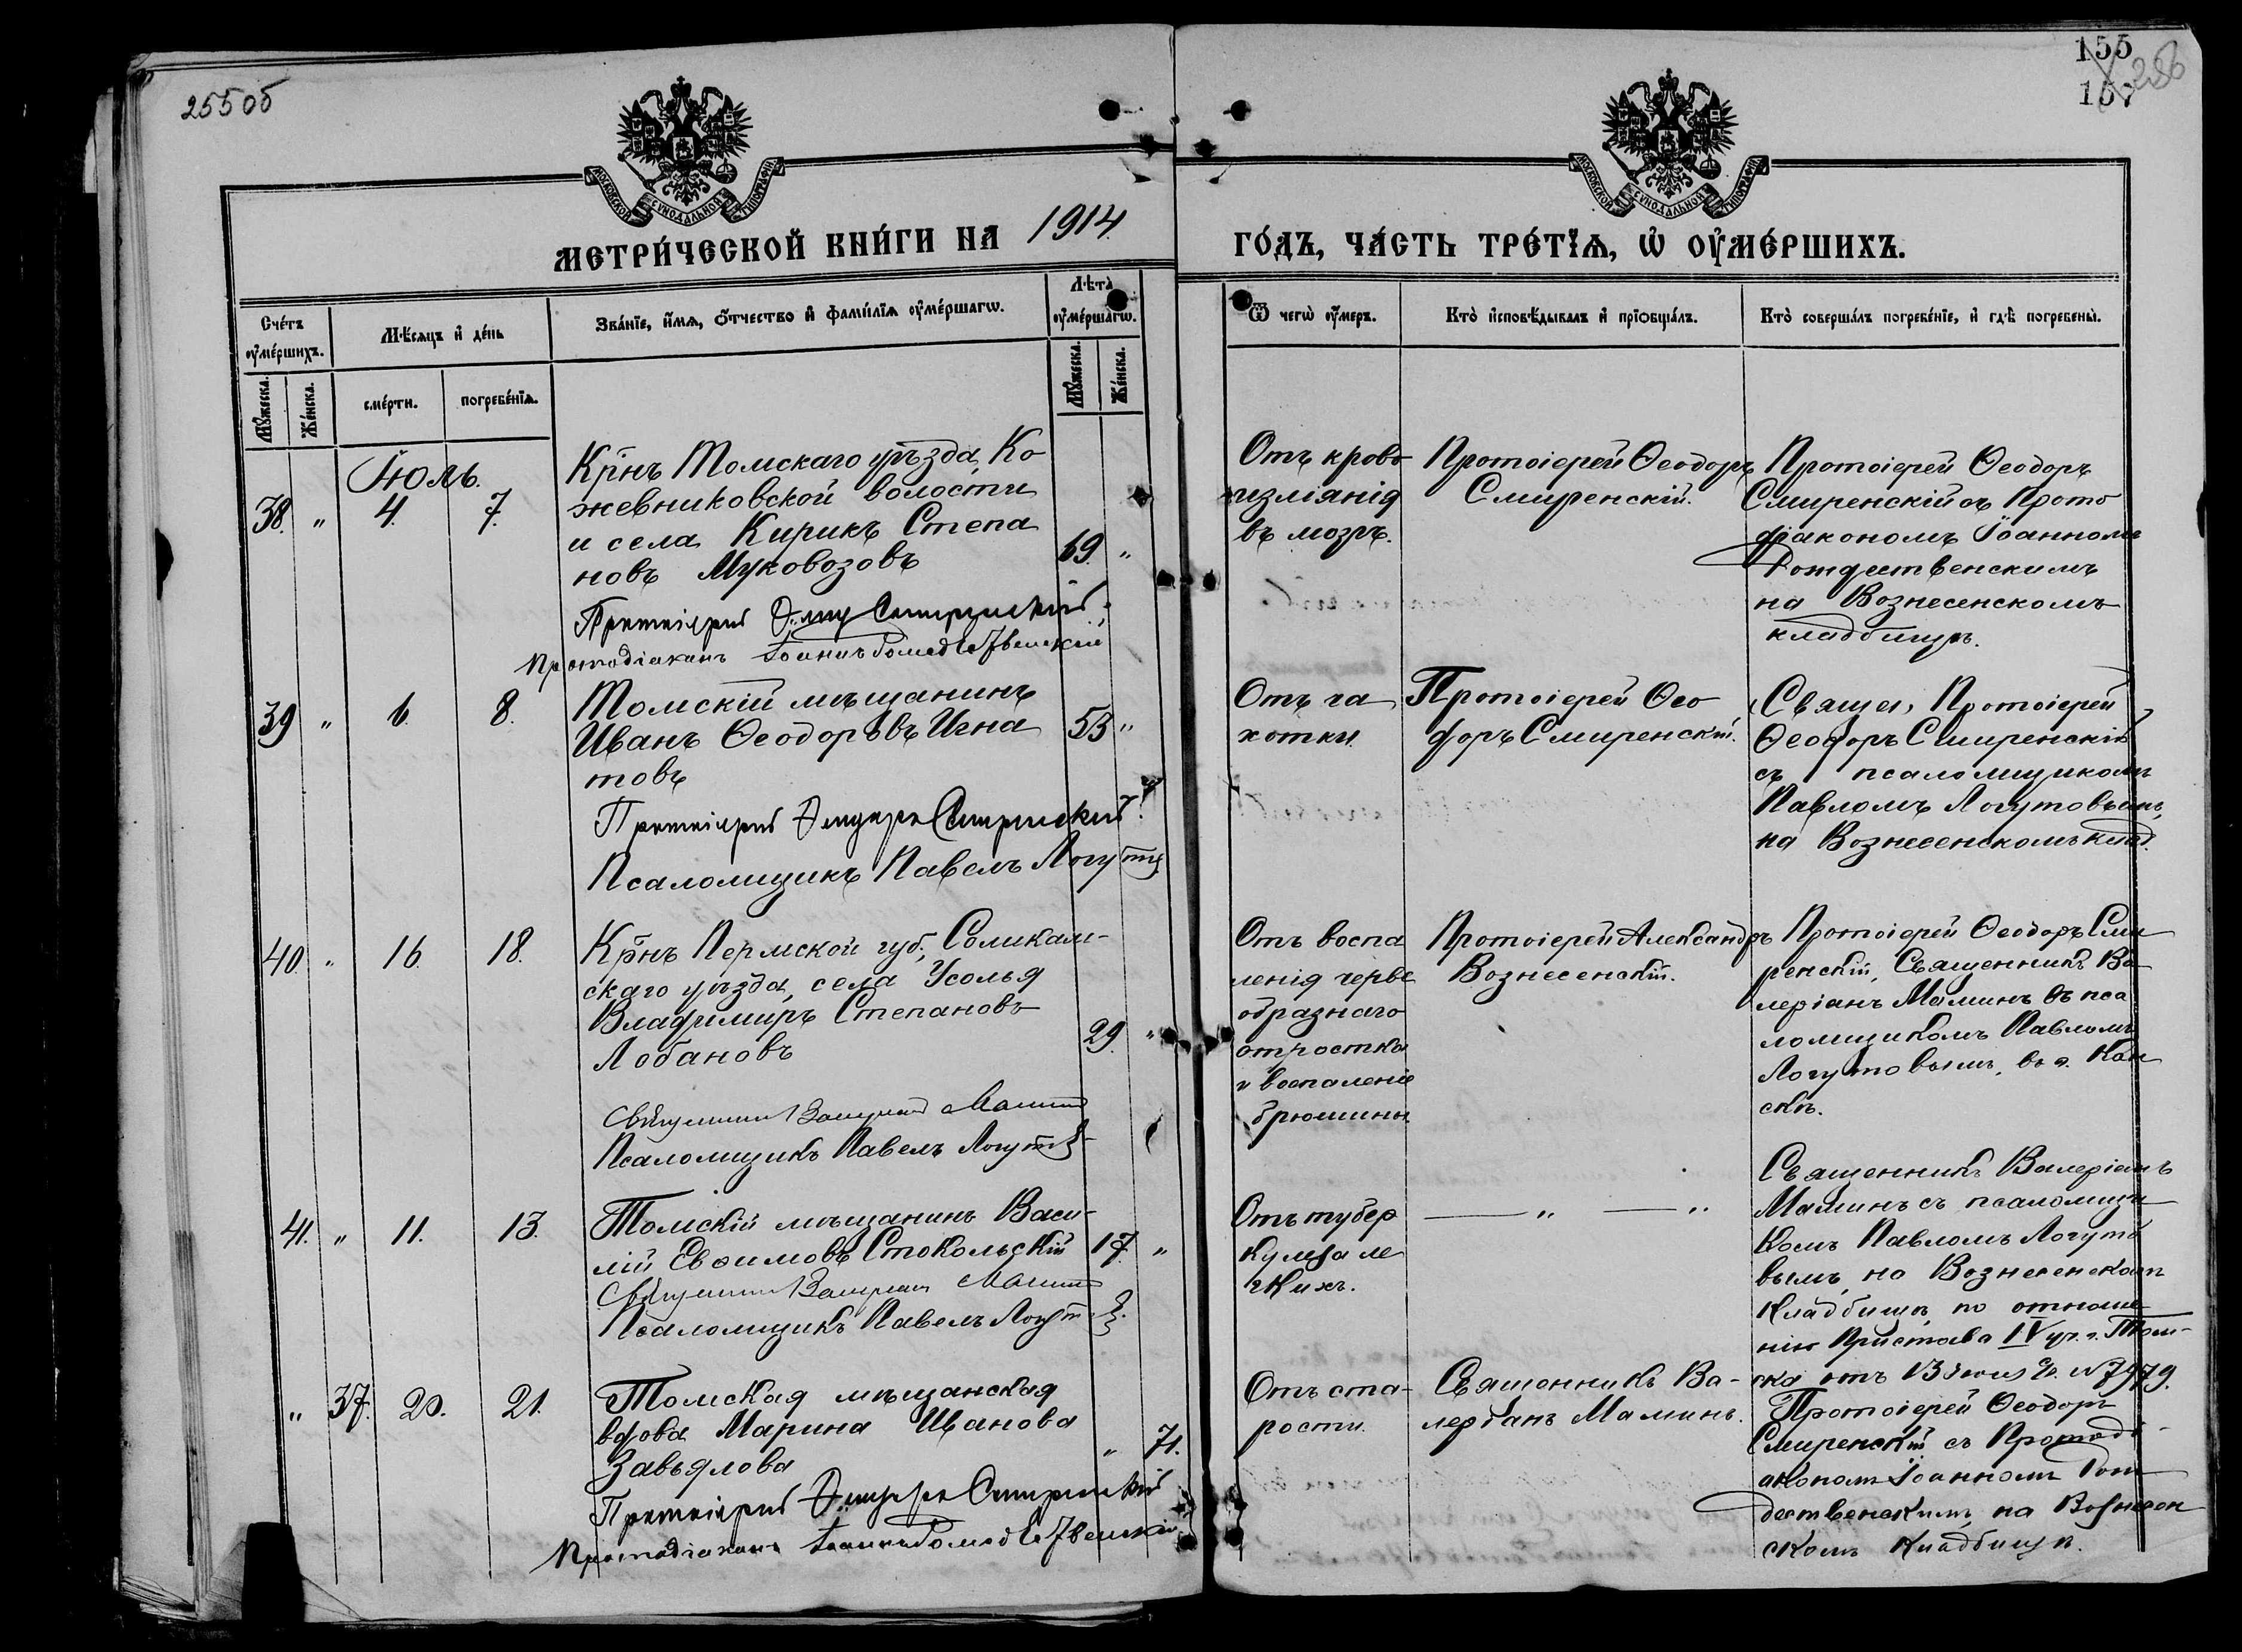 255об
155
157
256
МОСКОВСКОЙ СѴНОДАЛЬНОЙ ТИПОГРАФІИ
МОСКОВСКОЙ СѴНОДАЛЬНОЙ ТИПОГРАФІИ
МЕТРИ́ЧЕСКОЙ КНИ́ГИ НА 1914
ГО́ДЪ, ЧА́СТЬ ТРЕ́ТІѦ, Ѡ ОУМЕ́РШИХЪ.
Сче́тъ оуме́ршихъ.
Мѣ́сяцъ и де́нь
Зва́ніе, и́мѧ, ѻ҆́тчество и фами́лїѧ оуме́ршагѡ.
Лѣ́та оуме́ршагѡ.
Ѿ чегѡ̀ оу́меръ.
Кто̀ исповѣ́дывалъ и прїѡбща́лъ.
Кто̀ соверша́лъ погребе́нїе, и гдѣ̀ погребены̀.
Мꙋ́жеска.
Же́нска.
сме́рти.
погребе́нїѧ.
Мꙋ́жеска.
Же́нска.
Іюль.
38. " 4. 7.
Кр̃нъ Томскаго уѣзда, Ко
жевниковской волости
и села Кирикъ Степа
новъ Муковозовъ
69. "
Протоіерей Ѳеод Смиренскій
Протодіаконъ Іоаннъ Рождественскій
Отъ крово
изліянія
въ мозгъ.
Протоіерей Ѳеодоръ
Смиренскій.
Протоіерей Ѳеодоръ
Смиренскій съ Прото
діакономъ Іоанномъ
Рождественскимъ
на Вознесенскомъ
кладбищѣ.
39 " 6. 8.
Томскій мѣщанинъ
Иванъ Ѳеодоровъ Игна
товъ
53 "
Протоіерей Ѳеодоръ Смиренскій
Псаломщикъ Павелъ Логутовъ
Отъ ча
хотки.
Протоіерей Ѳео
доръ Смиренскій.
Свящ., Протоіерей
Ѳеодоръ Смиренскій
съ псаломщикомъ
Павломъ Логутовымъ,
на Вознесенскомъ клад.
40. " 16. 18.
Кр̃нъ Пермской губ., Соликам-
скаго уѣзда, села Усолья
Владимиръ Степановъ
Лобановъ
29. "
Священникъ Валеріанъ Маминъ
Псаломщикъ Павелъ Логутов
Отъ воспа
ленія черве
образнаго
отростка
и воспаленіе
брюшины.
Протоіерей Александръ
Вознесенскій.
Протоіерей Ѳеодоръ Сми
ренскій, Священникъ Ва
леріанъ Маминъ съ пса
ломщикомъ Павломъ
Логутовымъ, въ г. Каи
скѣ.
41. " 11. 13.
Томскій мѣщанинъ Васи-
лій Евфимовъ Стокольскій
17. "
Священникъ Валеріанъ Маминъ
Псаломщикъ Павелъ Логут
Отъ тубер
кулеза ле
гкихъ.
— " — "
Священникъ Валеріанъ
Маминъ съ псаломщи
комъ Павломъ Логуто
вымъ, на Вознесенскомъ
кладбищѣ, по отноше
нію Пристава IV уч. г. Том-
ска отъ 13 іюля с/г. № 7979.
" 37. 20. 21.
Томская мѣщанская
вдова Марина Иванова
Завьялова
" 71.
Протоіерей Ѳеодоръ Смиренскій
Протодіаконъ Іоаннъ Рождественскій
Отъ ста-
рости.
Священникъ Ва-
леріанъ Маминъ.
Протоіерей Ѳеодоръ
Смиренскій съ Протоді-
акономъ Іоанномъ Рож
дественскимъ, на Вознесен
скомъ кладбищѣ.